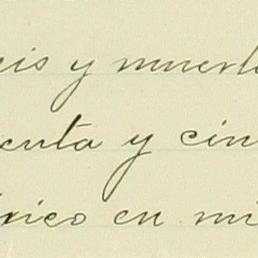 eis y muert
enta y cin
éxico en mi